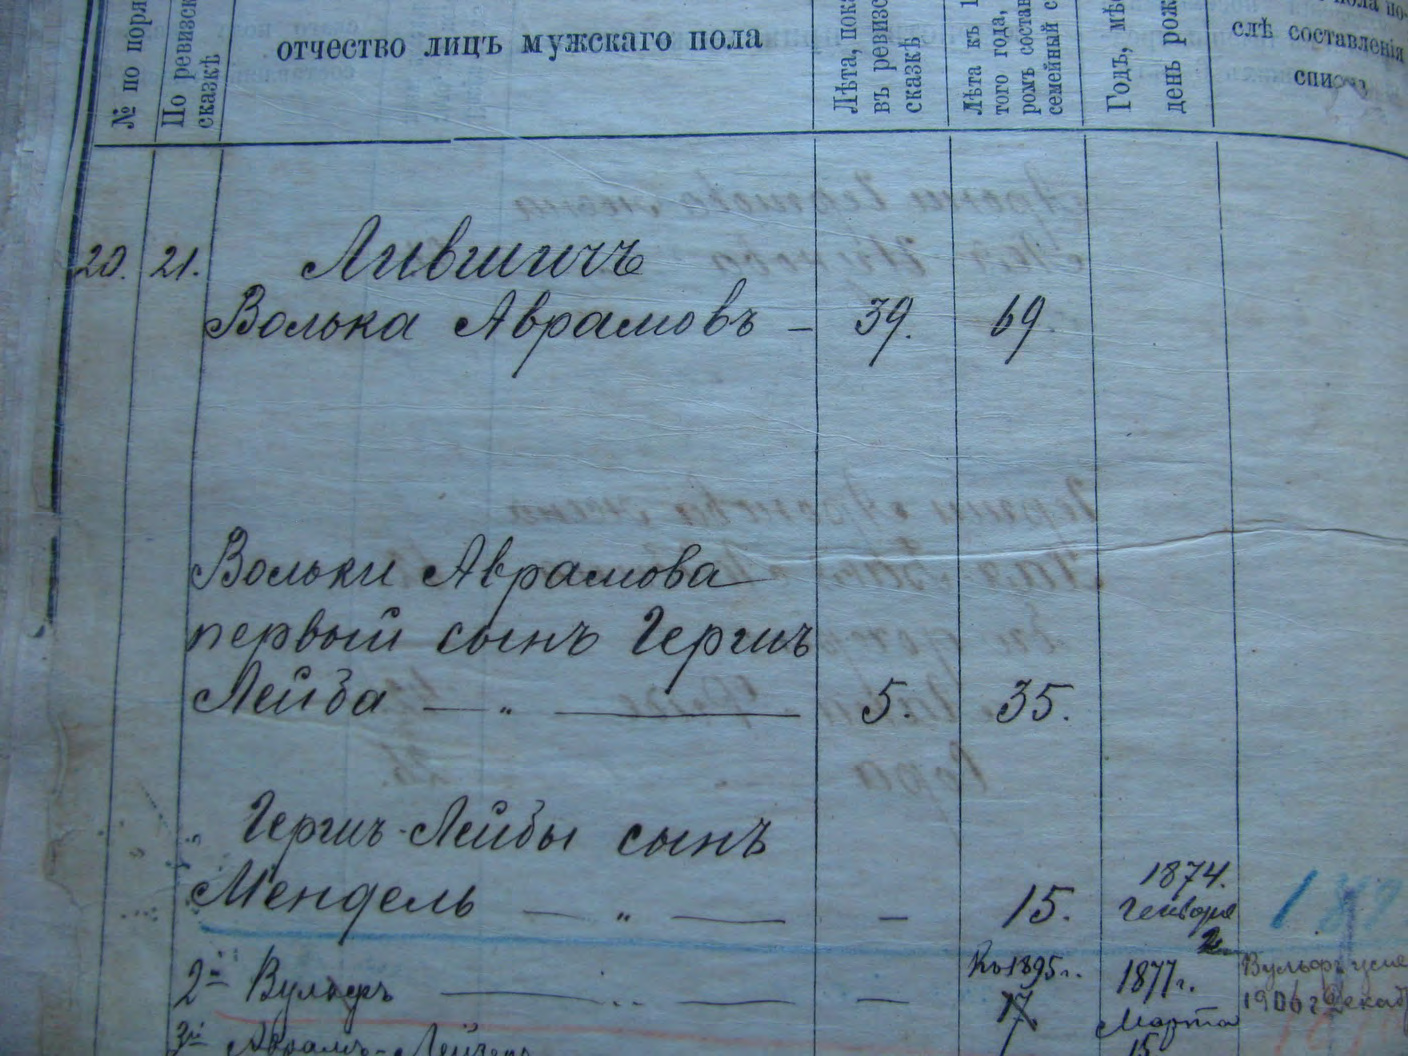 № по поря
По ревизск
сказкѣ
отчество лицъ мужскаго пола
Лѣта, пока
въ ревизс
сказкѣ
Лѣта къ 1
того года,
ромъ состав
семейный с
Годъ, мѣ
день рож
пола по-
слѣ составленія
списка
20. 21. Лившичъ
Волька Аврамовъ — 39. 69.
Вольки Аврамова
первый сынъ Гершъ
Лейба — „ — 5. 35.
Гершъ-Лейбы сынъ
1874.
Мендель — „ — — 15. Генваря
2
2й Вульфъ — „ — — Къ 1895 г. 1877 г. Вульфъ
17 Марта 1906 г. Декаб
15
3й Абрамъ-Лейзеръ